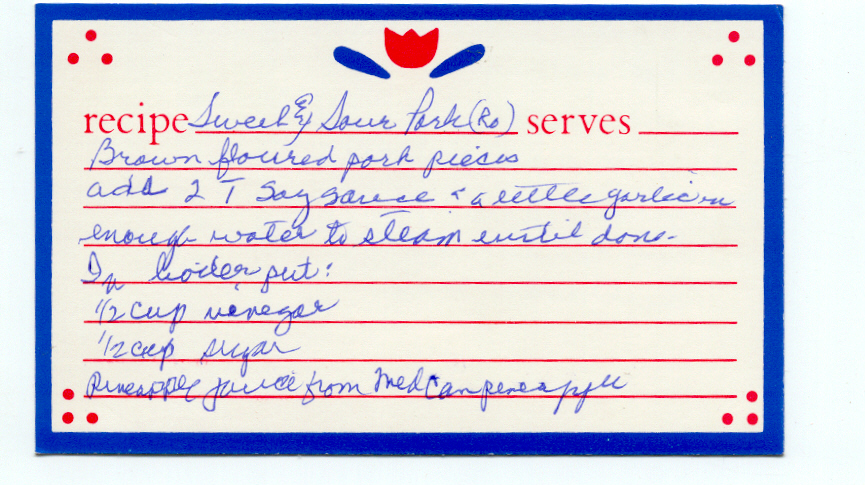 recipe Sweet & Sour Pork (Ro) serves
Brown floured pork pieces
add 2 T Soy Sauce & a little garlic in
enough water to steam until done.
In boiler put:
1/2 cup vinegar
1/2 cup sugar
Pineapple juice from Med can pineapple